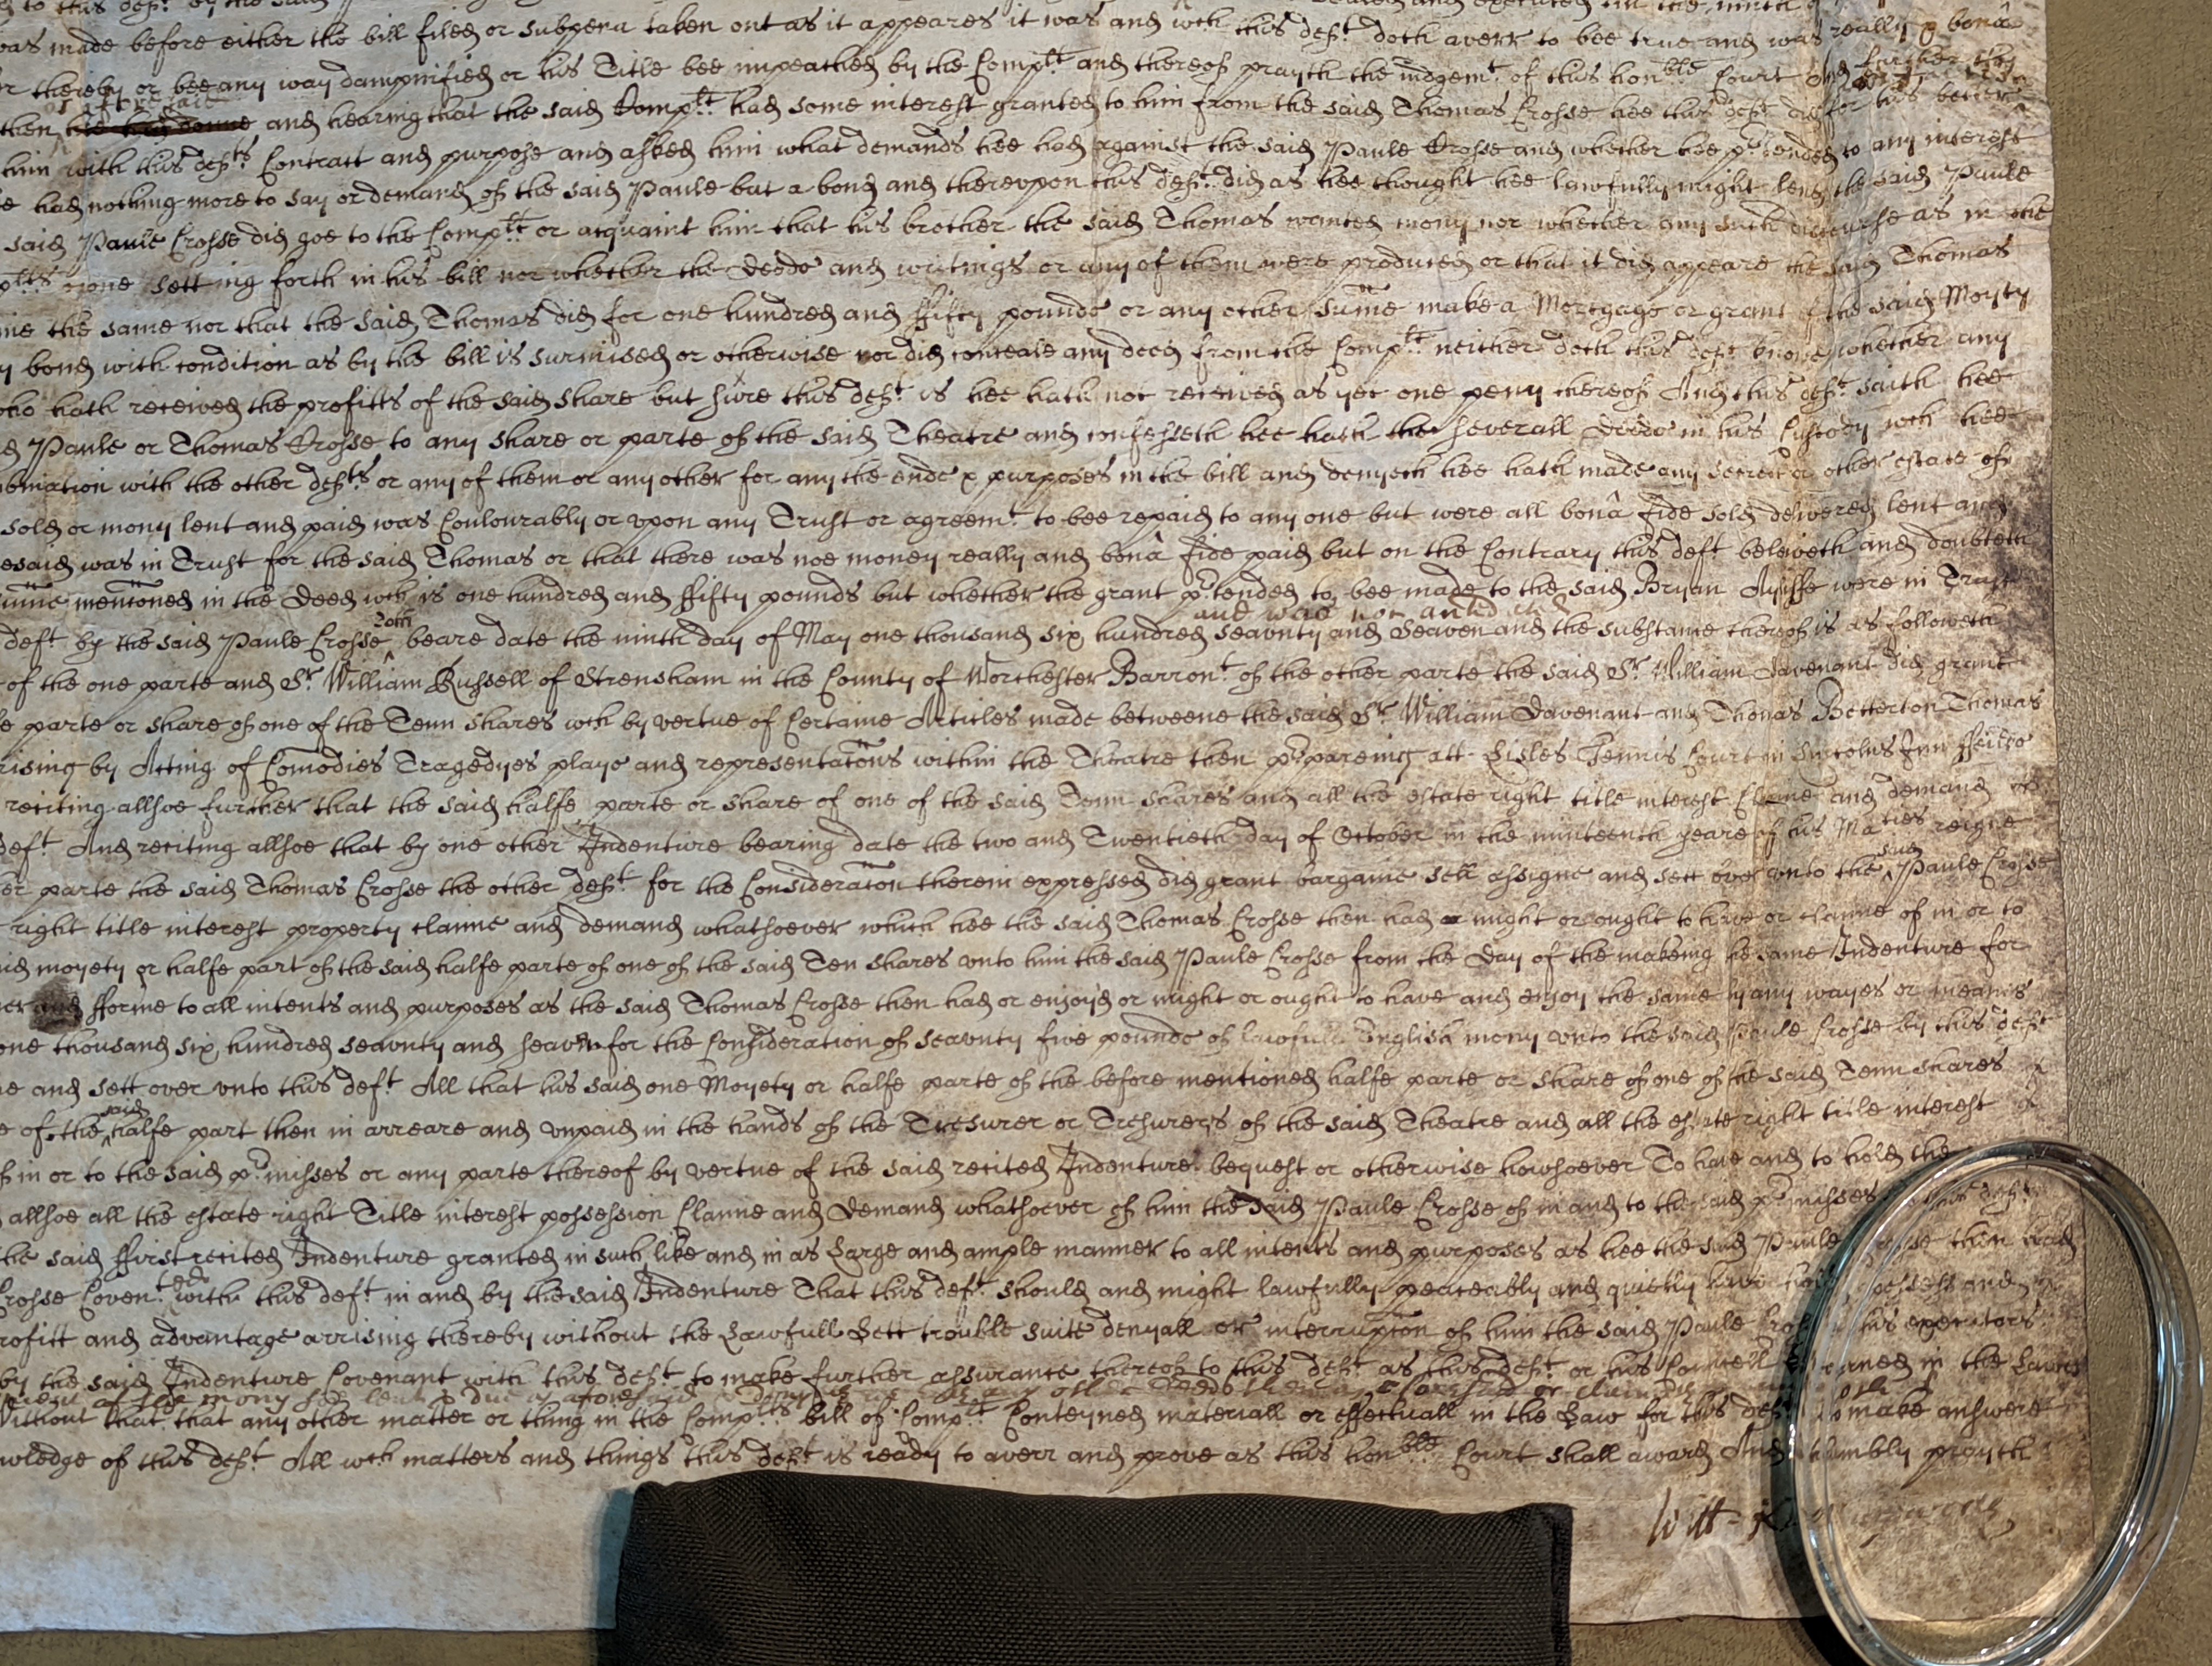 to this deft by the said
was made before either the bill filed or subpena taken out as it appeares it was and wch this deft doth averr to bee true and was really & bonâ
thereby or bee any way dampnified or his Title bee impeached by the Complt and thereof prayth the iudgemt of this honble Court and further this
then and hearing that the said Complt had some interest granted to him from the said Thomas Crosse hee this deft did for his better
him with this defts Contract and purpose and asked him what demands hee had against the said Paule Crosse and whether hee prtended to any interest
had nothing more to say or demand of the said Paule but a bond and therevpon this deft did as hee thought hee lawfully might lend the said Paule
said Paule Crosse did goe to the Complt or acquaint him that his brother the said Thomas wanted mony nor whether any such discourse as in the
setting forth in his bill nor whether the Deeds and writings or any of them were produced or that it did appeare the said Thomas
the same nor that the said Thomas did for one hundred and ffifty pounds or any other sume make a Mortgage or grant of the said Moyty
bond with condition as by the bill is surmised or otherwise nor did conceale any deed from the Complt neither doth this deft know whether any
who hath received the profitts of the said share but sure this deft is hee hath not received as yet one peny thereof And this deft saith hee
Paule or Thomas Crosse to any share or parte of the said Theatre and confesseth hee hath the severall deeds in his Custody wch hee
with the other defts or any of them or any other for any the ends & purposes in the bill and denyeth hee hath made any secret or other estate of
sold or mony lent and paid was Coulourably or vpon any Trust or agreemt to bee repaid to any one but were all bonâ fide sold delivered lent and
was in Trust for the said Thomas or that there was noe money really and bonâ fide paid but on the Contrary this deft beleiveth and doubteth
sume mentioned in the Deed wch is one hundred and ffifty pounds but whether the grant prtended to bee made to the said Bryan Ayliffe were in Trust
and was not
deft by the said Paule Crosse doth beare date the ninth day of May one thousand six hundred seavnty and Seaven and the substance thereof is as followeth
of the one parte and Sr William Russell of Strensham in the County of Worchester Barront of the other parte the said Sr William Davenant did grant
parte or share of one of the Tenn shares wch by vertue of Certaine Articles made betweene the said Sr William Davenant and Thomas Betterton Thomas
rising by Acting of Comodies Tragedyes plays and representatons within the Theatre then prpareing att Lisles Tennis Court in Lincolns Inn ffeilds
reciting allsoe further that the said halfe parte or share of one of the said Tenn shares and all the estate right title interest Clame and demand
deft And reciting allsoe that by one other Indenture bearing date the two and Twentieth day of October in the ninteenth yeare of his Maties reigne
parte the said Thomas Crosse the other deft for the Consideraton therein expressed did grant bargaine sell assigne and sett over vnto the said Paule Crosse
right title interest property claime and demand whatsoever which hee the said Thomas Crosse then had or might or ought to have or claime of in or to
moyety or halfe part of the said halfe parte of one of the said Ten shares vnto him the said Paule Crosse from the Day of the makeing the same Indenture for
and fforme to all intents and purposes as the said Thomas Crosse then had or enjoyd or might or ought to have and enjoy the same by any wayes or meanes
one thousand six hundred seavnty and seaven for the Consideration of seavnty five pounds of lawfull English mony vnto the said Paule Crosse by this deft
and sett over vnto this deft All that his said one Moyety or halfe parte of the before mentioned halfe parte or share of one of the said Tenn shares
of the said halfe part then in arreare and vnpaid in the hands of the Tresurer or Tresurers of the said Theatre and all the estate right title interest
of in or to the said prmisses or any parte thereof by vertue of the said recited Indenture bequest or otherwise howsoever To have and to hold the
allsoe all the estate right Title interest possession Claime and Demand whatsoever of him the said Paule Crosse of in and to the said prmisses
the said ffirst recited Indenture granted in such like and in as Large and ample manner to all intents and purposes as hee the said Paule Crosse then had
Crosse Covent with this deft in and by the said Indenture That this deft should and might lawfully peaceably and quietly have possess and
profitt and advantage arrising thereby without the Lawfull Lett trouble suite denyall or interrupton of him the said Paule Crosse his executors
by the said Indenture Covenant with this deft to make further assurance thereof to this deft as this deft or his Councell learned in the Lawes
mony lent & due as aforesaid
Without that that any other matter or thing in the Complts bill of Complt Conteyned materiall or effectuall in the Law for this deft to make answere
knowledge of this deft All wch matters and things this deft is ready to averr and prove as this honble Court shall award And humbly prayth
Will